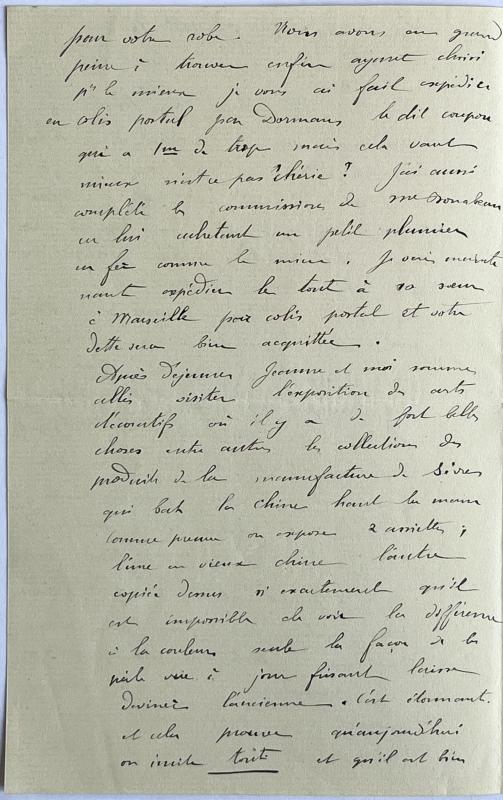 pour votre robe. Nous avons eu grand
peine à trouver enfin ayant choisi
pr le mieux je vous ai fait expédier
en colis postal par Dormans le dit coupon
qui a 1m de trop mais cela vaut
mieux n'est ce pas chérie? J'ai aussi
complété les commissions de Mme
en lui achetant un petit plumier
en fer comme le mien. Je vais mainte
nant expédier le tout à sa sœur
à Marseille par colis postal et votre
dette sera bien acquittée.
Après déjeuner Jeanne et moi sommes
allés visiter l'exposition des arts
décoratifs où il y a de fort belles
choses entre autres les collections des
produits de la manufacture de Sèvres
qui bat la Chine haut la main
comme preuve on expose 2 assiettes;
l'une en vieux chine l'autre
copiée dessus si exactement qu'il
est impossible de voir la différence
à la couleur seule la façon de les
à jour laisse
deviner l'ancienne. C'est étonnant.
et cela prouve qu'aujourd'hui
on imite tout et qu'il est bien